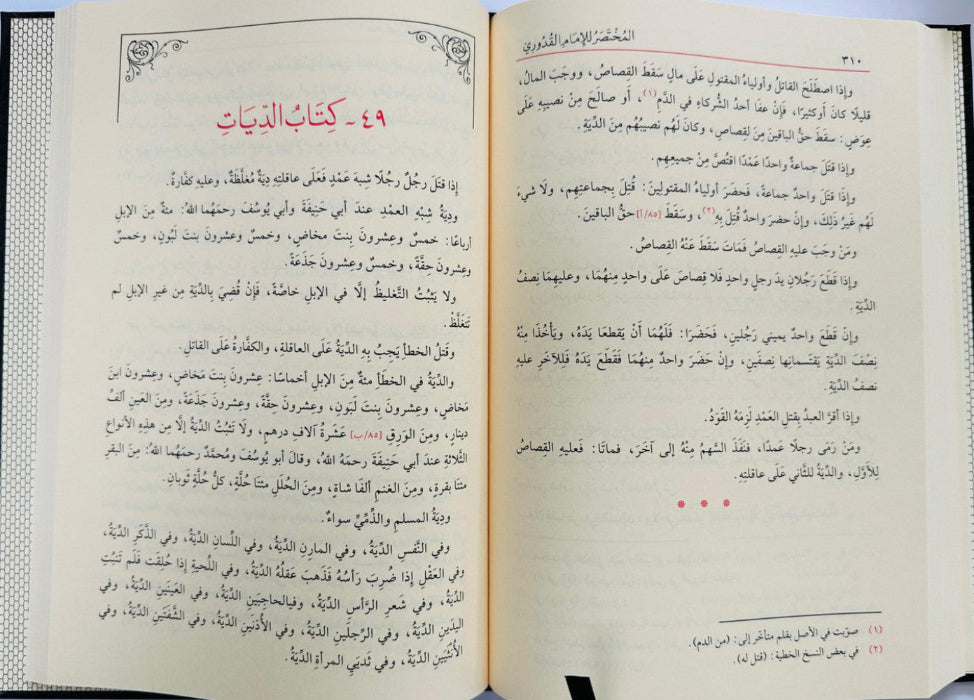 المُخْتَصَرُ للإمَامِ القُدُورِيّ
٣١٠
وإذا اصطَلَحَ القاتلُ وأولياءُ المقتولِ عَلَى مالٍ سَقَطَ القِصاصُ، ووجَبَ المالُ،
قليلًا كانَ أو كثيرًا، فإنْ عفَا أحدُ الشُّركاءِ في الدَّمِ(١)، أو صالحَ مِنْ نصيبِهِ عَلَى
عِوَضٍ: سقطَ حقُّ الباقينَ مِنَ لقِصاصِ، وكانَ لَهُم نصيبُهُم مِنَ الدِّيَةِ.
وإذا قتلَ جماعةٌ واحدًا عَمْدًا اقتُصَّ مِنْ جميعِهِم.
وإذا قَتلَ واحدٌ جماعةً، فَحَضَرَ أولياءُ المقتولينَ: قُتِلَ بِجماعتِهِم، ولا شيءَ
لَهُم غَيرُ ذَلِكَ، وإنْ حضرَ واحدٌ قُتِلَ بِهِ(٢)، وسَقَطَ [٨٥/أ] حقُّ الباقينَ.
ومَنْ وجَبَ عليهِ القِصاصُ فَمَاتَ سَقَطَ عَنْهُ القِصاصُ.
وإذا قَطَعَ رَجُلانِ يدَ رجلٍ واحدٍ فَلا قِصاصَ عَلَى واحدٍ مِنهُمَا، وعليهِمَا نِصفُ
الدِّيَةِ.
وإنْ قَطَعَ واحدٌ يمينَي رَجُلينِ، فَحَضَرَا: فَلَهُمَا أنْ يَقطعَا يَدَهُ، ويَأخُذَا مِنْهُ
نِصْفَ الدِّيَةِ يَقتَسمَانِها نِصفَينِ، وإنْ حَضَرَ واحدٌ مِنهُمَا فَقَطَعَ يَدَهُ فَلِلآخَرِ عليهِ
نصفُ الدِّيَةِ.
وإذا أقرَّ العبدُ بِقتلِ العَمْدِ لَزِمَهُ القَوَدُ.
ومَنْ رَمَى رجلًا عَمدًا، فنَفَذَ السَّهمُ مِنْهُ إلى آخَرَ، فماتَا: فَعليهِ القِصاصُ
لِلأوَّلِ، والدِّيَةُ للثَّاني عَلَى عاقلتِهِ.
* * *
(١) صوّبت في الأصل بقلم متأخر إلى: (من الدم).
(٢) في بعض النسخ الخطية: (قتل له).
٤٩ - كِتَابُ الدِّيَاتِ
إذا قتَلَ رجُلٌ رجُلًا شِبهَ عَمْدٍ فَعَلَى عاقلتِهِ دِيَةٌ مُغلَّظَةٌ، وعليهِ كفَّارةٌ.
ودِيَةُ شِبْهِ العمْدِ عندَ أبي حَنِيفَةَ وأبي يُوسُفَ رحمَهُما اللهُ: مئةٌ مِنَ الإبلِ
أرباعًا: خمسٌ وعِشرونَ بِنتَ مخاضٍ، وخمسٌ وعشرونَ بنتَ لَبُونٍ، وخمسٌ
وعِشرونَ حِقَّةً، وخمسٌ وعِشرونَ جَذَعَةً.
ولا يَثْبُتُ التَّغليظُ إلَّا في الإبلِ خاصَّةً، فَإنْ قُضِيَ بِالدِّيَةِ مِن غيرِ الإبلِ لم
تتَغلَّظْ.
وقَتلُ الخطأِ يَجِبُ بِهِ الدِّيَةُ عَلَى العاقلةِ، والكفَّارةُ عَلَى القاتلِ.
والدِّيَةُ في الخطَأِ مئةٌ مِنَ الإبلِ أخماسًا: عِشرونَ بِنتَ مَخَاضٍ، وعِشرونَ ابنَ
مَخاضٍ، وعِشرونَ بِنتَ لَبَونٍ، وعِشرونَ حِقَّةً، وعِشرونَ جَذَعَةً، ومِنَ العَينِ ألفُ
دينارٍ، ومِنَ الوَرِقِ [٨٥/ب] عَشَرَةُ آلافِ درهمٍ، ولا تَثبُتُ الدِّيَةُ إلَّا مِن هذِهِ الأنواعِ
الثَّلاثةِ عندَ أبي حَنِيفَةَ رحمَهُ اللهُ، وقالَ أبو يُوسُفَ ومُحمَّدٌ رحمَهُما اللهُ: مِنَ البقرِ
مئتَا بقرةٍ، ومِنَ الغنمِ ألفَا شاةٍ، ومِنَ الحُلَلِ مئتَا حُلَّةٍ، كلُّ حُلَّةٍ ثَوبانِ.
ودِيَةُ المسلمِ والذِّمِّيِّ سواءٌ.
وفي النَّفْسِ الدِّيَةُ، وفي المارِنِ الدِّيَةُ، وفي اللِّسانِ الدِّيَةُ، وفي الذَّكَرِ الدِّيَةُ،
وفي العَقْلِ إذا ضُرِبَ رَأسُهُ فَذَهبَ عَقلُهُ الدِّيَةُ، وفي اللِّحيةِ إذا حُلِقَت فَلَم تَنبُتِ
الدِّيَةُ، وفي شَعرِ الرَّأسِ الدِّيَةُ، وفيالحاجبَينِ الدِّيَةُ، وفي العَينَينِ الدِّيَةُ، وفي
اليدَينِ الدِّيَةُ، وفي الرِّجلَينِ الدِّيَةُ، وفي الأُذنَينِ الدِّيَةُ، وفي الشَّفَتَينِ الدِّيَةُ، وفي
الأُنثَيَينِ الدِّيَةُ، وفي ثَديَيِ المرأةِ الدِّيَةُ.